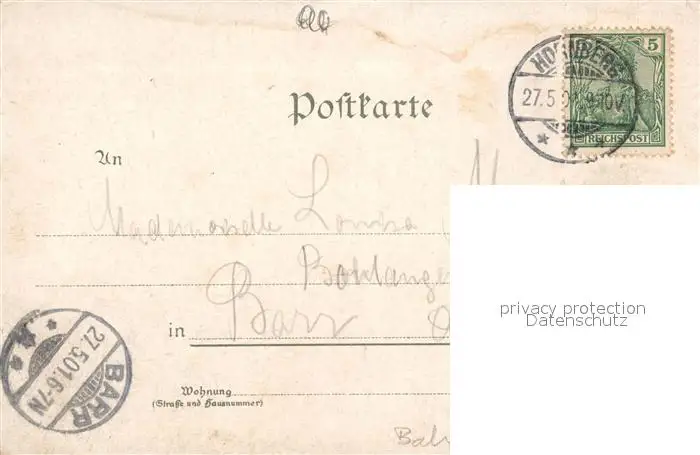 HORNBERG
27.5.01. 9-10V
5
REICHSPOST
Postkarte
An
Mademoiselle Louisa
in Barr
27.5.01.6-7N
BARR
Wohnung
(Straße und Hausnummer)
privacy protection
Datenschutz